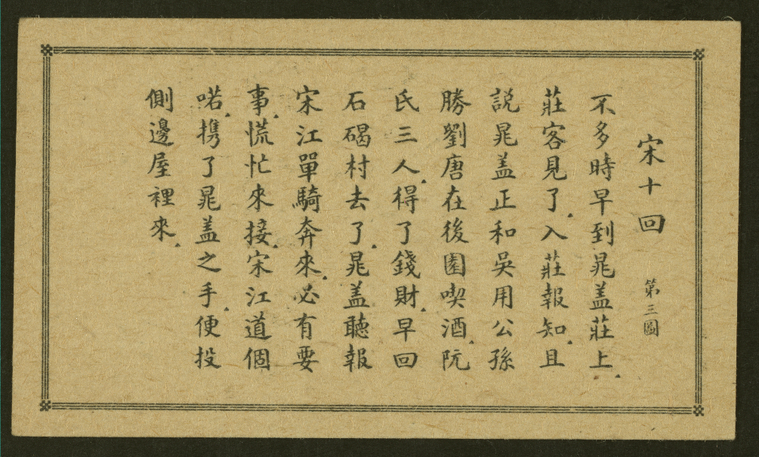 宋十回 第三圖
不多時早到晁盖莊上.
莊客見了.入莊報知.且
説晁盖正和吳用公孫
勝劉唐在後園喫酒.阮
氏三人.得了錢財.早回
石碣村去了.晁盖聽報
宋江單騎奔來.必有要
事.慌忙來接.宋江道個
喏.携了晁盖之手.便投
側邊屋裡來.